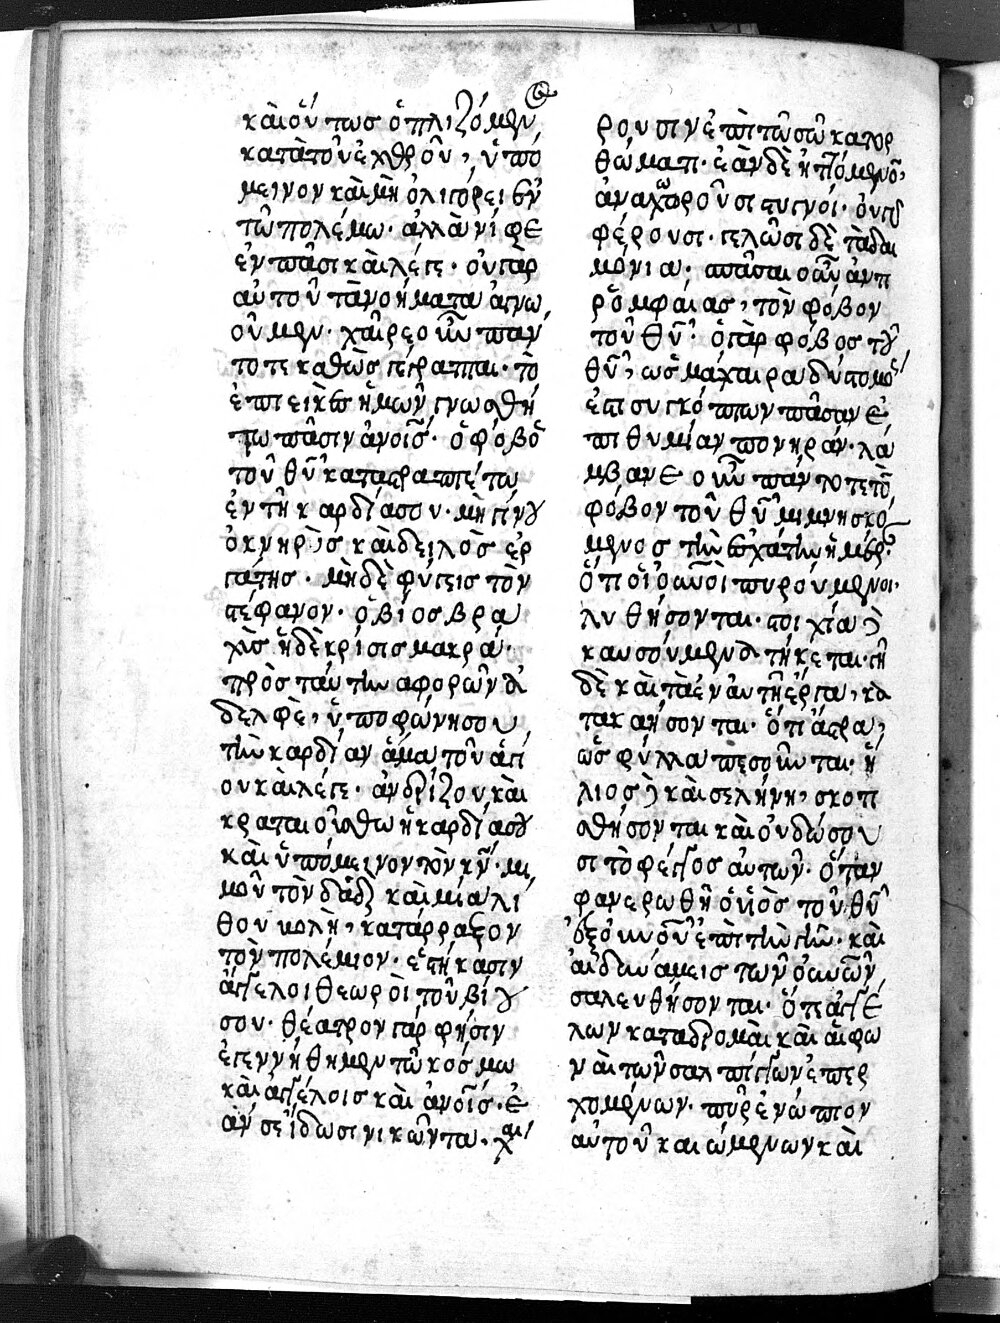 καὶ οὕτως ὁπλιζόμεν
κατὰ τὸν ἐχθρὸν, ὑπό
μεινον καὶ μὴ ὀλιγόρει ἐν
τῶ πολέμω· ἀλλὰ νί φε
ἐν πᾶσι καὶ λέγε· οὐ γὰρ
αὐτοῦ τὰ νοήματα ἀγνω
οῦμεν· χαῖρε οὖν παν
τοτε καθὼς γέγραπται· τὸ
ἐπιεικὲς ἡμῶν γνωσθή
τω πᾶσιν ἀνοις· ὁ φόβος
τοῦ θυ καταστραπτέτω
ἐν τῆ καρδία σου· μὴ γίνου
ὀκνηρὸς καὶ δειλὸς ἐρ
γάτης· μηδὲ φύγεις τὸν
στέφανον· ὁ βίος βρα
χὺς ἡ δὲ κρίσις μακρά·
πρὸς ταύτην ἀφορῶν ἀ
δελφὲ, ὑποφώνησον
τὴν καρδίαν ἅμα τοῦ ἁγί
ου καὶ λέγε· ἀνδρίζου καὶ
κραταιούσθω ἡ καρδία σου
καὶ ὑπόμεινον τὸν κν· μι
μοῦ τὸν δαδ καὶ μία λί
θου βολῆ, κατάρραξον
τὸν πολέμιον· ἑστήκασιν
ἄγγελοι θεωροὶ τοῦ βίου
σου· θέατρον γάρ φησιν
ἐγεννήθημεν τῶ κόσμω
καὶ ἀγγέλοις καὶ ἀνοις· ἐ
άν σε ἴδωσι νικῶντα· χαί
ρουσιν ἐπὶ τῶ σῶ κατορ
θώματι· ἐὰν δὲ ἡττόμενον,
ἀναχωροῦσι στυγνοί· οὐ γὰρ
φέρουσι· γελῶσι δὲ τὰ δαι
μόνια· σπᾶσαι οὖν ἀντι
ρομφαίας, τὸν φόβον
τοῦ θυ· ὁ γὰρ φόβος τοῦ
θυ, ὡς μάχαιρα δύστομος
ἐστι συγκόπτων πᾶσαν ἐ
πιθυμίαν πονηράν· λά
μβανε οὖν πάντοτε τὸν
φόβον τοῦ θυ μιμνησκό
μενος τὴν ἐσχάτην ἡμέραν·
ὅτε οἱ οὐνοὶ πυρούμενοι
λυθήσονται· στοιχία
καυσούμενα τήκεται· γῆ
δὲ καὶ τὰ ἐν αὐτῆ ἔργα, κα
τακαήσονται· ὅτι ἄστρα
ὡς φύλλα πεσοῦνται· ἥ
λιος καὶ σελήνη, σκοτι
σθήσονται καὶ οὐ δώσου
σι τὸ φέγγος αὐτῶν· ὅταν
φανερωθῆ ὁ υἱὸς τοῦ θυ
ἐξ οὐνοῦ ἐπὶ τὴν γῆν· καὶ
αἱ δυνάμεις τῶν οὐνῶν,
σαλευθήσονται· ὅτε ἀγγέ
λων καταδρομαὶ καὶ αἱ φω
ναὶ τῶν σαλπίγγων ἐπερ
χομένων· πῦρ ἐνώπιον
αὐτοῦ καιώμενων καὶ